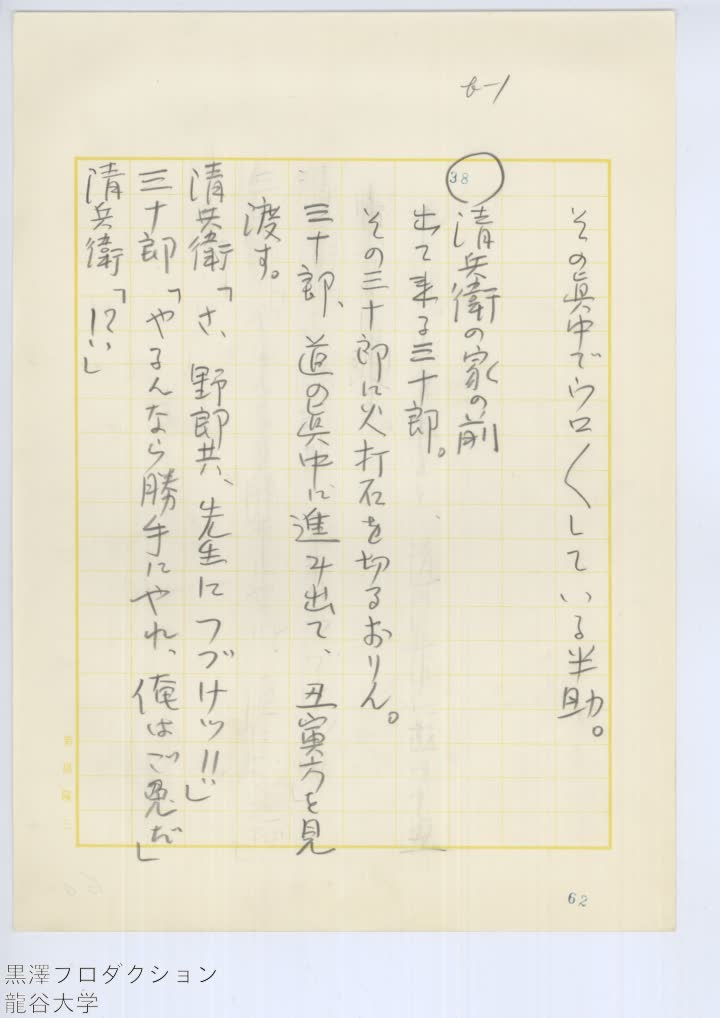 6-1
その眞中でウロ〱している半助。
38
清兵衛の家の前
出て来る三十郎。
その三十郎に火打石を切るおりん。
三十郎、道の眞中に進み出て、丑寅方を見
渡す。
清兵衛「さ、野郎共、先生につづけッ!!」
三十郎「やるんなら勝手にやれ、俺はご免だ」
清兵衛「!?」
62
黒澤プロダクション
龍谷大学